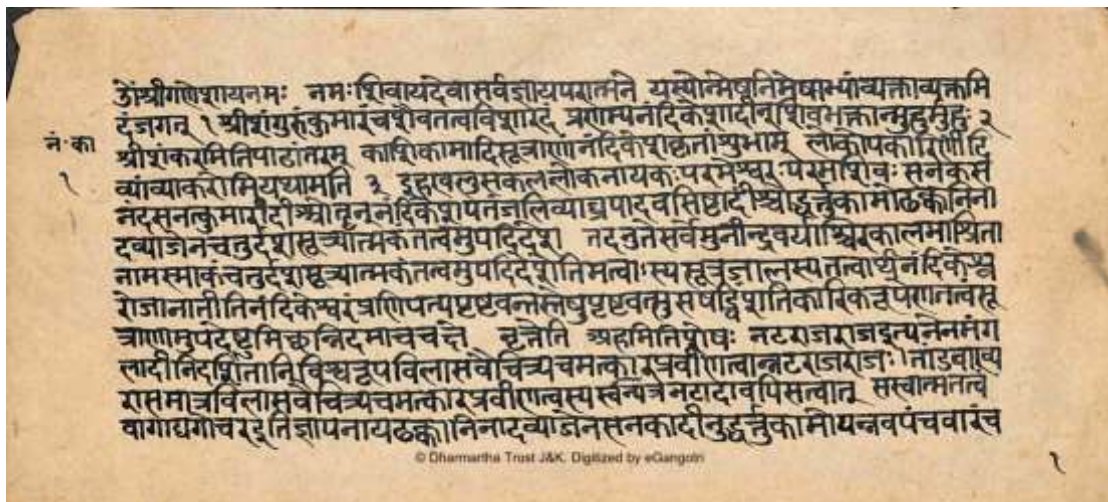 ॐश्रीगणेशायनमः नमःशिवायदेवासर्वज्ञायपरात्मने यस्योन्मेषनिमेषाभ्यांव्यक्ताव्यक्तमि
दंजगत् १ श्रीशंगुरुंकुमारंचशैवतत्वविशारदं प्रणाम्यनंदिकेशादीन्शिवभक्तान्मुहुर्मुहुः २
नं॰का
श्रीशंकरमितिपाठांतरम् काशिकामादिसूत्राणांनंदिकेशकृतांशुभाम् लोकोपकारिणीदि
१
व्यांव्याकरोमियथामति ३ इहखलुसकललोकनायकःपरमेश्वरःपरमशिवःसनकस
नंदसनत्कुमारादीश्रोतॄन्नंदिकेशपतंजलिव्याघ्रपादवसिष्टादींश्चोद्धर्त्तुकामोढक्कानिना
दव्याजेनचतुर्दशसूत्र्यात्मकंतत्वमुपदिदेश तदनुतेसर्वमुनीन्द्रवर्याश्चिरकालमाश्रिता
नामस्माकंचतुर्दशसूत्र्यात्मकंतत्वमुपदिदेशेतिमत्वाऽस्यसूत्रजालस्यतत्वार्थंनंदिकेश्व
रोजानातीतिनंदिकेश्वरंप्रणिपत्यपृष्टवन्तस्तेषुपृष्टवत्सुसषड्विंशतिकारिकारूपेणतत्वंसू
त्राणामुपदेष्टुमिच्छन्निदमाचचक्षे नृत्तेति अहमितिशेषः नटराजराजइत्यनेनमंग
लादीनिदर्शितानिविश्वरूपविलासवैचित्र्यचमत्कारप्रवीणत्वान्नटराजराजः तांडवाख्य
रासमात्रविलासवैचित्र्यचमत्कारप्रवीणत्वस्यस्वन्यत्रनटादावपिसत्वात् सस्वात्मतत्वं
वागाद्यगोचरइतिज्ञापनायढक्कानिनादव्याजेनसनकादीनुद्धर्त्तुकामोयन्नवपंचवारंच
१
© Dharmartha Trust J&K. Digitized by eGangotri